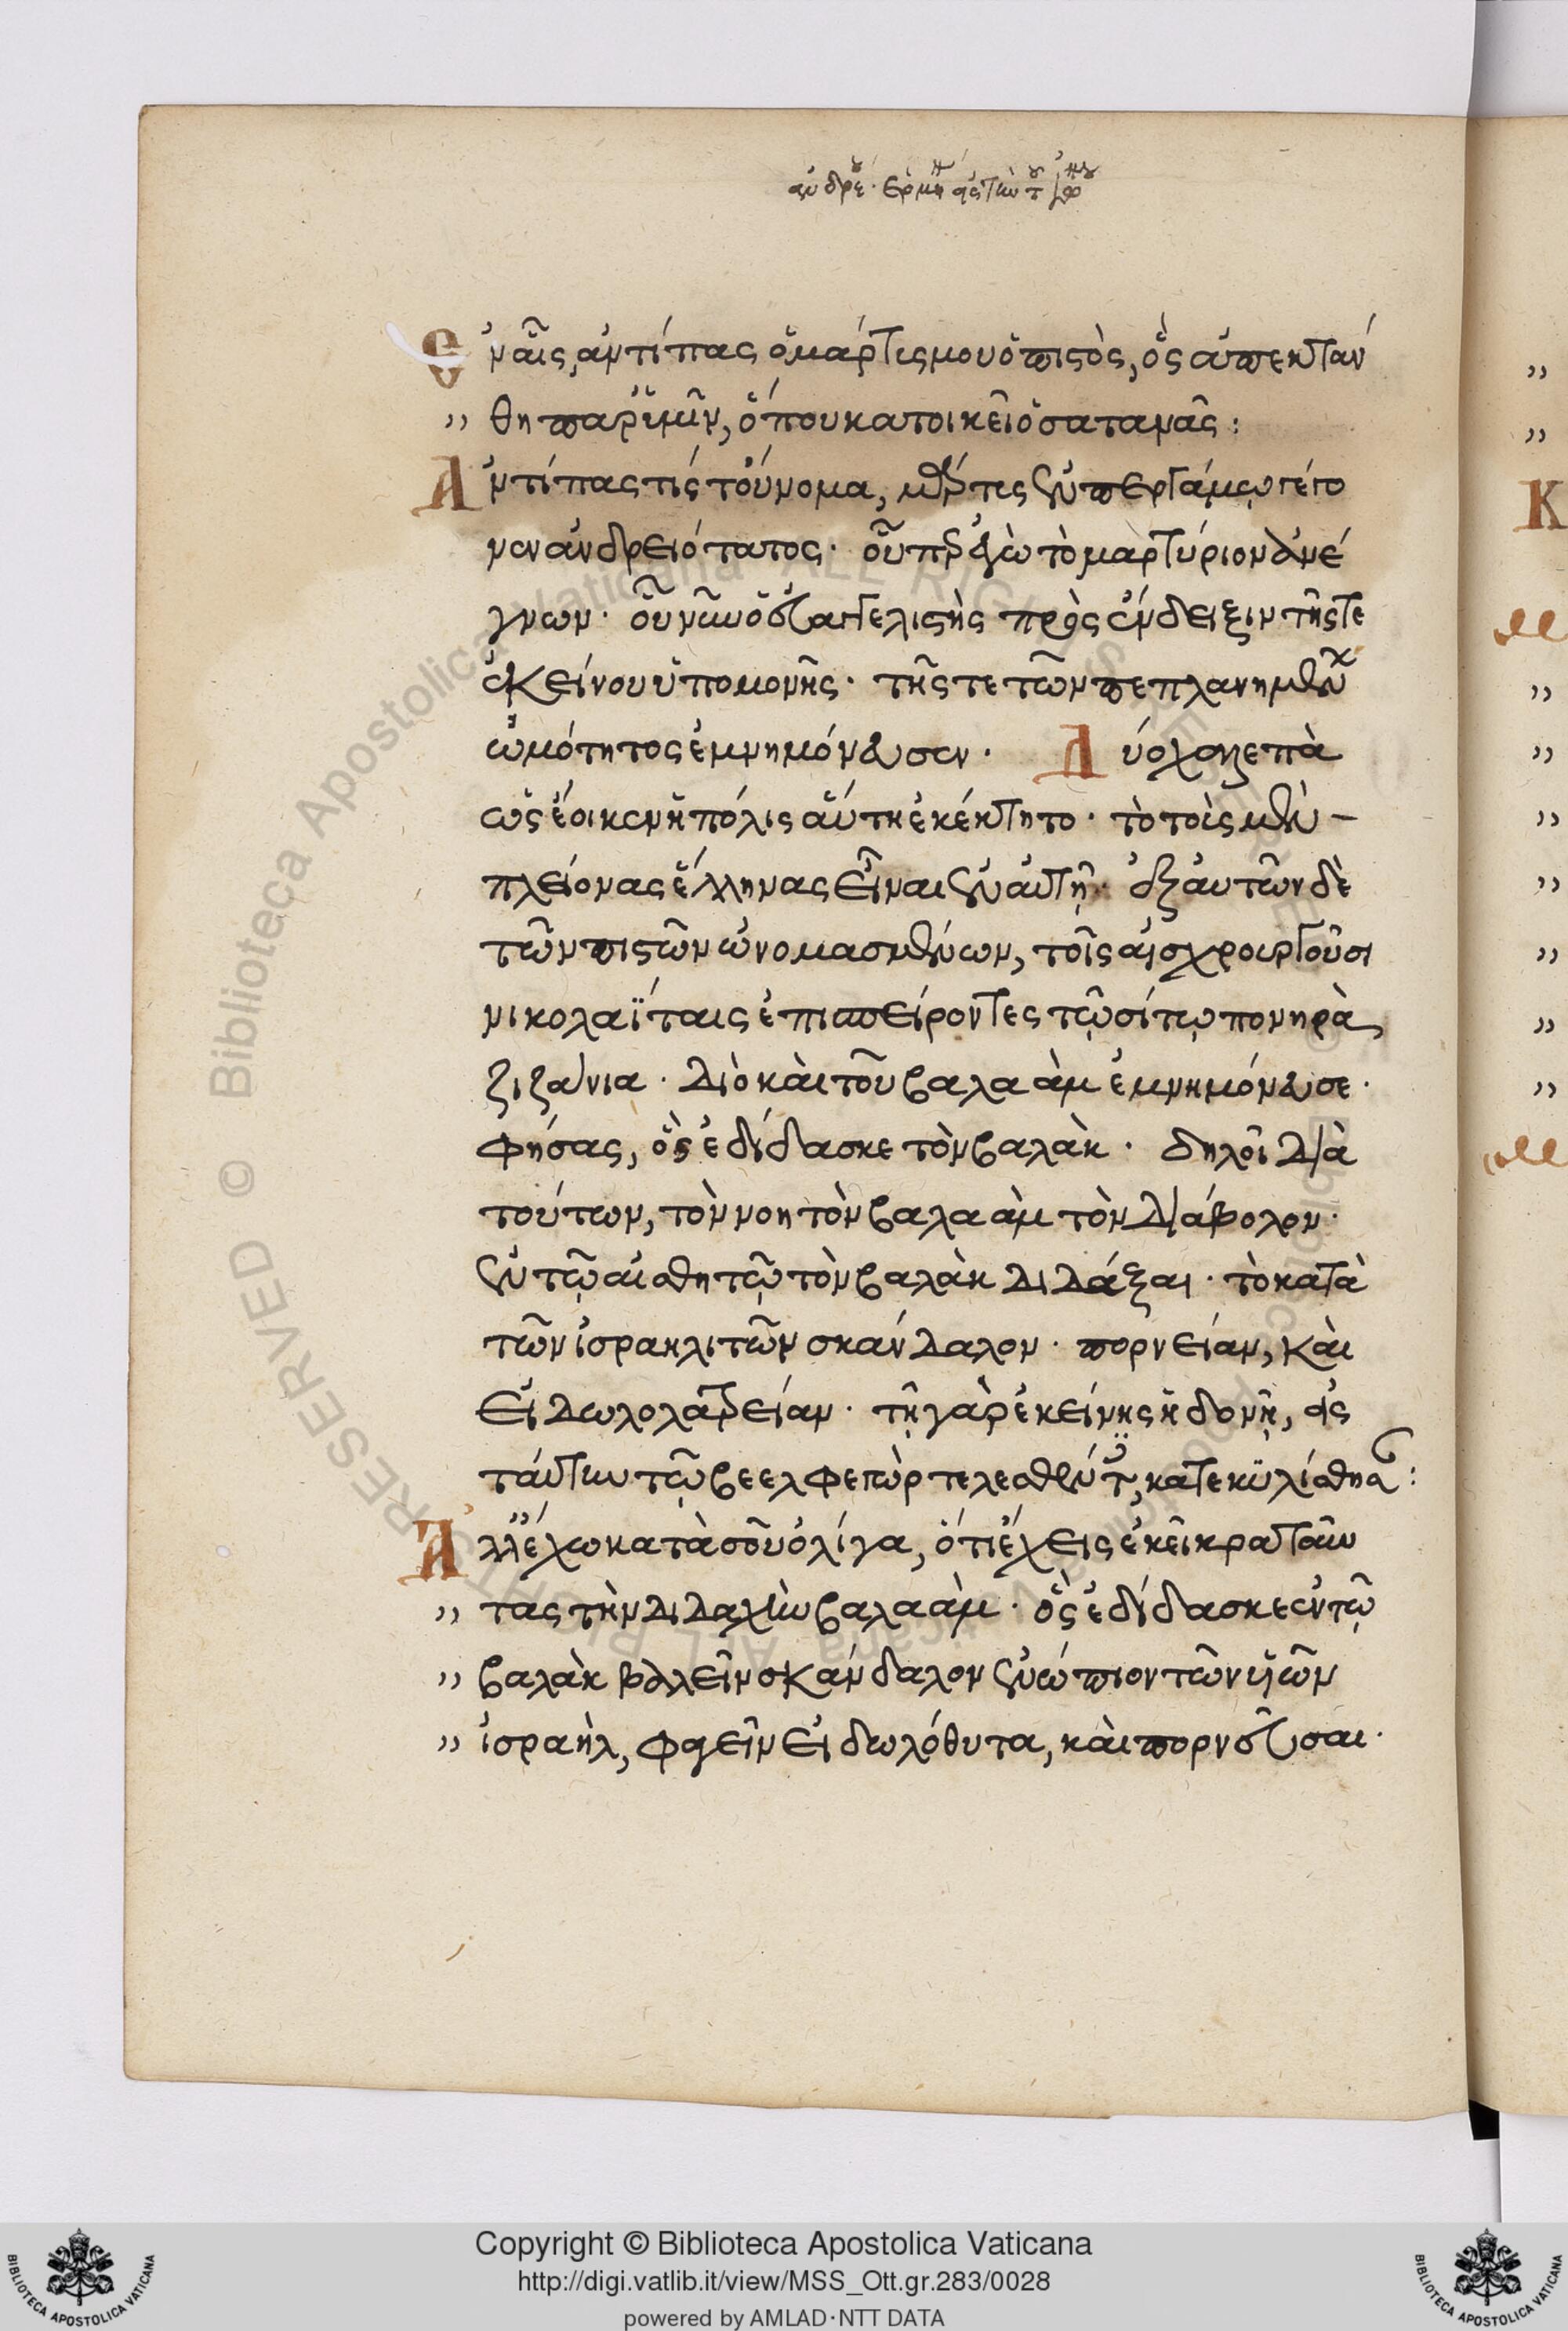 ἐν αἷς, ἀντίπας ὁ μάρτις μου ὁ πιστὸς, ὃς ἀπεκταν
" θη παρ' ἡμῖν, ὅπου κατοικεῖ ὁ σατανᾶς :
Ἀντίπας τίς τοὔνομα, μάρτις ἐν περγάμῳ γέγο
νεν ἀνδρειότατος · οὗπερ ἐγὼ τὸ μαρτύριον ἀνέ
γνων · οὗ νῦν ὁ εὐαγγελιστὴς πρὸς ἔνδειξιν τῆς τε
ἐκείνου ὑπομονῆς · τῆς τε τῶν πεπλανημένων
ὠμότητος ἐμνημόνευσεν · Δύο χαλεπὰ
ὡς ἔοικεν ἡ πόλις αὕτη ἐκέκτητο · τὸ τοὺς μὲν –
πλείονας ἕλληνας εἶναι ἐν αὐτῇ · ἐξ αὐτῶν δὲ
τῶν πιστῶν ὠνομασμένων, τοῖς αἰσχρουργοῦσι
νικολαΐταις ἐπισπείροντες τῷ σίτῳ πονηρὰ
ζιζάνια · διὸ καὶ τοῦ βαλαὰμ ἐμνημόνευσε ·
φήσας, ὃς ἐδίδασκε τὸν βαλὰκ · δηλοῖ διὰ
τούτων, τὸν νοητὸν βαλαὰμ τὸν διάβολον ·
ἐν τῷ αἰσθητῷ τὸν βαλὰκ διδάξαι · τὸ κατὰ
τῶν ἰσραηλιτῶν σκάνδαλον · πορνείαν, καὶ
εἰδωλολατρείαν · τῇ γὰρ ἐκείνης ἡδονῇ, εἰς
ταύτην τῷ βεελφεγὼρ τελεσθέντες, κατεκυλίσθησαν :
Ἀλλ' ἔχω κατὰ σοῦ ὀλίγα, ὅτι ἔχεις ἐκεῖ κρατοῦν
" τας τὴν διδαχὴν βαλαὰμ · ὃς ἐδίδασκεν τῷ
" βαλὰκ βαλεῖν σκάνδαλον ἐνώπιον τῶν υἱῶν
" ἰσραὴλ, φαγεῖν εἰδωλόθυτα, καὶ πορνεῦσαι ·
"
"
Κ
"
"
"
"
"
"
"
Copyright © Biblioteca Apostolica Vaticana
http://digi.vatlib.it/view/MSS_Ott.gr.283/0028
powered by AMLAD·NTT DATA
BIBLIOTECA APOSTOLICA VATICANA
BIBLIOTECA APOSTOLICA VATICANA